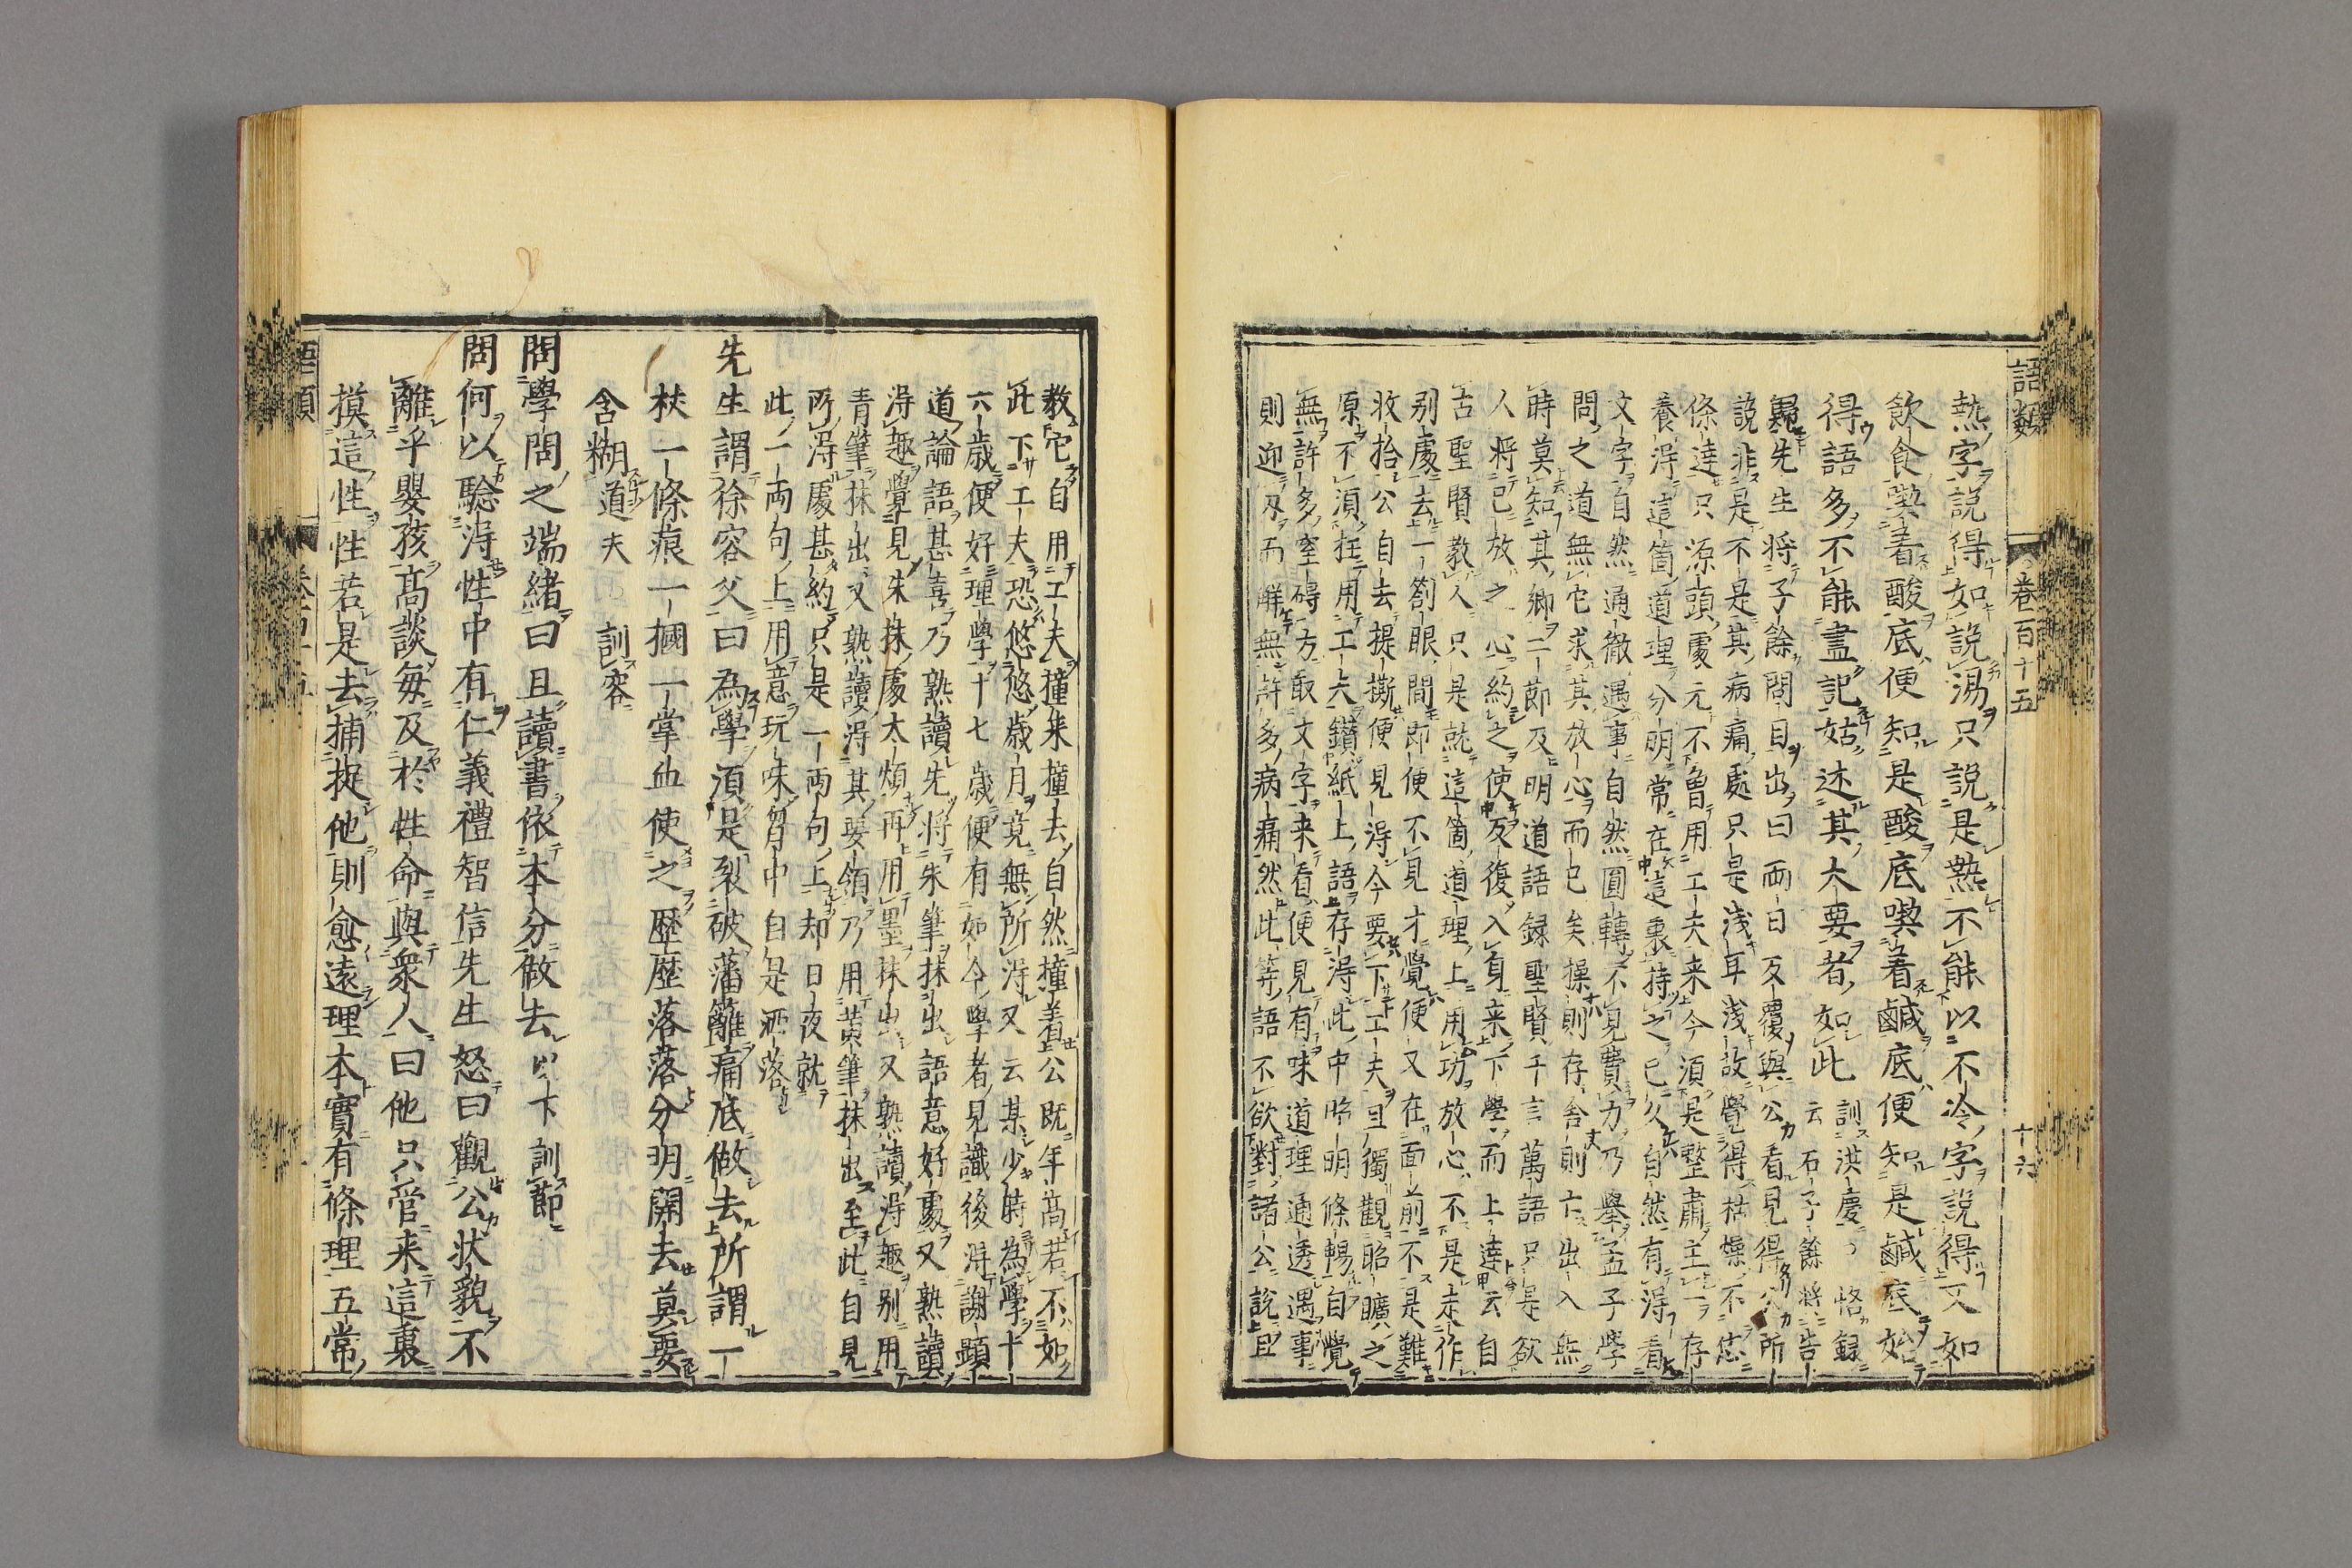 語類　卷百十五　十六
熱字說得如說湯只說是熱不能以不冷字說得又如
飲食喫着酸底便知是酸底喫着鹹底便知是鹹底始
得語多不能盡記姑述其大要者如此
訓洪慶○恪録
云石子餘將告
歸先生將子餘問目出曰兩日反覆與公看見得公所
說非是不是其病痛處只是淺耳淺故覺得枯燥不恁
條達只源頭處元不曾用工夫来今須是整肅主一存
養淂這箇道理分明常在這裏持之已久自然有淂看
文字自然通徹遇事自然圓轉不見費力乃舉孟子學
問之道無它求其放心而已矣操則存舍則亡出入無
時莫知其鄉二節及明道語録聖賢千言萬語只是欲
人將已放之心約之使反復入身来下學而上達云自
古聖賢教人只是就這箇道理上用功放心不是走作
别處去一劄眼間即便不見才覺便又在面前不是難
收拾公自去提撕便見淂今要下工夫且獨觀昭曠之
原不須枉用工夫鑽紙上語存淂此中昭明條暢自覺
無許多窒碍方取文字来看便見有味道理通透遇事
則迎刃而解無許多病痛然此等語不欲對諸公說且
教它自用工夫撞来撞去自然撞着公既年高若不如
此下工夫恐悠悠歲月竟無所淂又云某少時為學十
六歲便好理學十七歲便有如今學者見識後淂謝顯
道論語甚喜乃熟讀先將朱筆抹出語意好處又熟讀
淂趣覺見朱抹處太煩再用墨抹出又熟讀淂趣别用
青筆抹出又熟讀淂其要領乃用黃筆抹出至此自見
所淂處甚約只是一兩句上却日夜就
此一兩句上用意玩味胷中自是洒落
先生謂徐容父曰為學須是裂破藩籬痛底做去所謂一
杖一條痕一摑一掌血使之歷歷落落分明開去莫要
含糊道夫　訓容
問學問之端緒曰且讀書依本分做去以下訓節
問何以驗淂性中有仁義禮智信先生怒曰觀公状貌不
離乎嬰孩高談每及於性命與衆人曰他只管来這裏
摸這性性若是去捕捉他則愈遠理本實有條理五常
語類　卷百十五